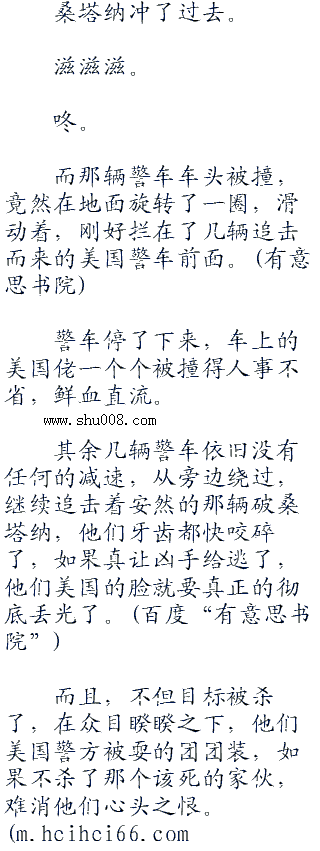 桑塔纳冲了过去。
滋滋滋。
咚。
而那辆警车车头被撞，
竟然在地面旋转了一圈，滑
动着，刚好拦在了几辆追击
而来的美国警车前面。(有意
思书院)
警车停了下来，车上的
美国佬一个个被撞得人事不
省，鲜血直流。
www.shu008.com
其余几辆警车依旧没有
任何的减速，从旁边绕过，
继续追击着安然的那辆破桑
塔纳，他们牙齿都快咬碎
了，如果真让凶手给逃了，
他们美国的脸就要真正的彻
底丢光了。(百度“有意思书
院”)
而且，不但目标被杀
了，在众目睽睽之下，他们
美国警方被耍的团团装，如
果不杀了那个该死的家伙，
难消他们心头之恨。
(m.hcihci66.com